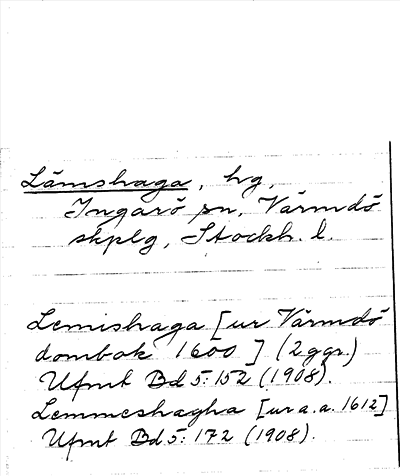 Lämshaga, hg,
Ingarö sn, Värmdö
skplg, Stockh. l.
Lemishaga [ur Värmdö
dombok 1600] (2 ggr.)
Ufmt Bd 5:152 (1908).
Lemmeshagha [ur a.a. 1612]
Ufmt Bd 5:172 (1908).